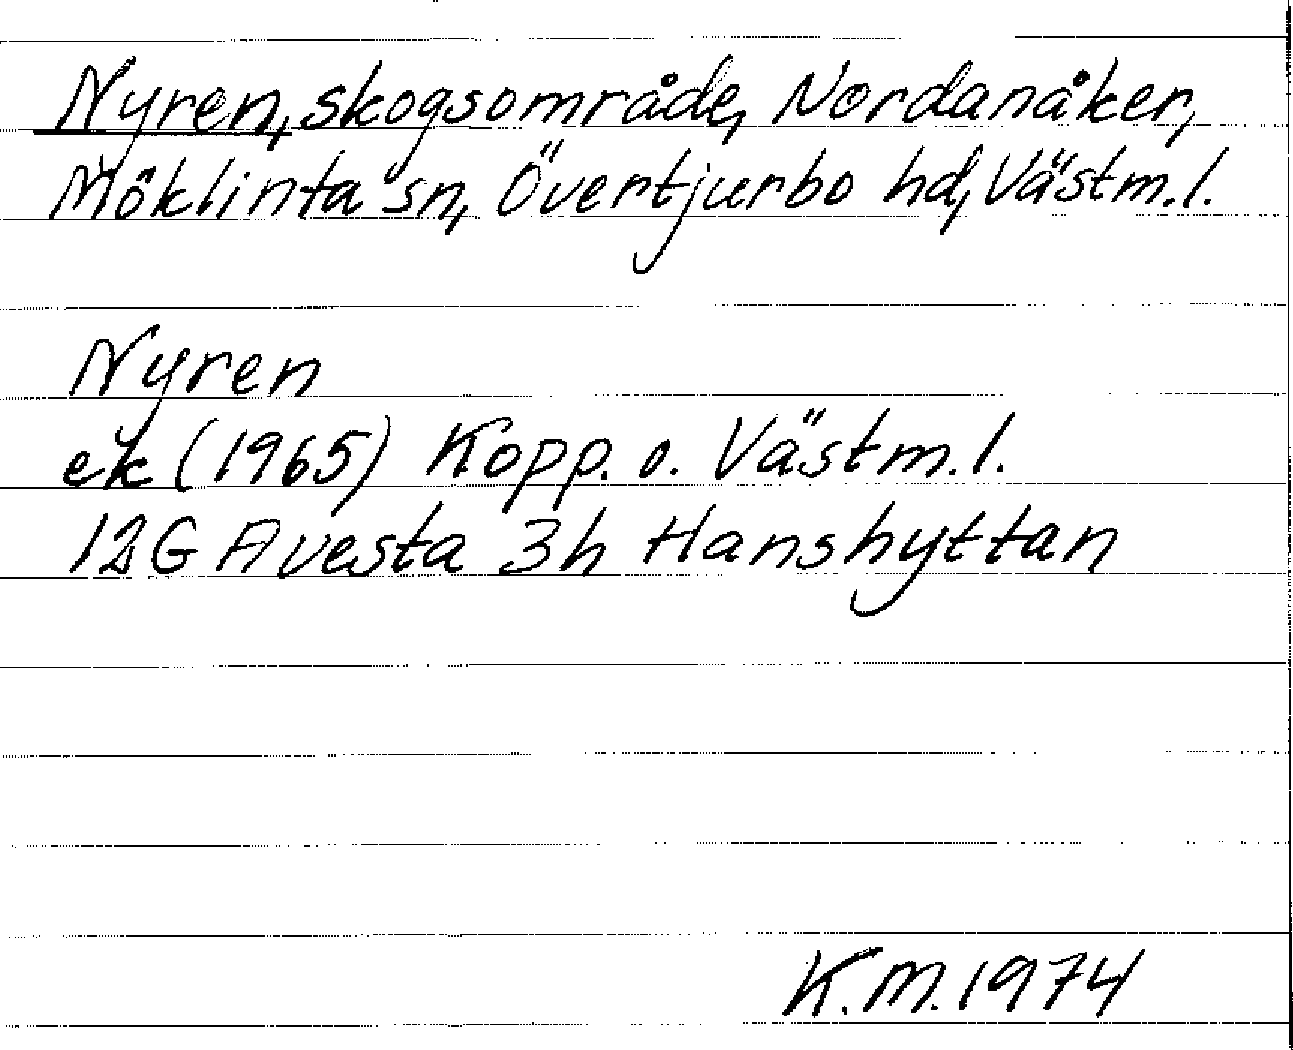 Nyren, skogsområde, Nordanåker,
Möklinta sn, Övertjurbo hd, Västm.l.
Nyren
ek (1965) Kopp. o. Västm.l.
12G Avesta 3h Hanshyttan
K.M. 1974